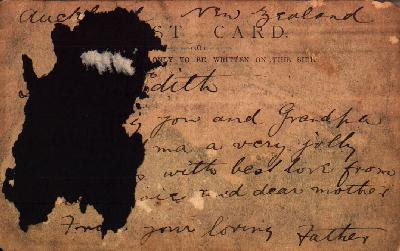 Auckland New Zealand
ST CARD.
ONLY TO BE WRITTEN ON THIS SIDE.
Edith
you and Grandpa
ma a very jolly
with best love from
and dear mother
From your loving Father